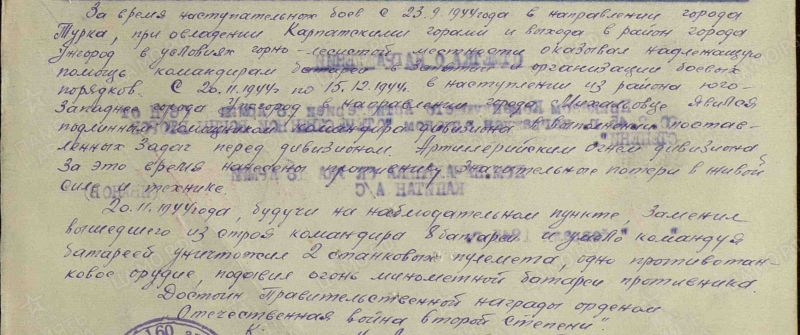 За время наступательных боев с 23.9.1944 года в направлении города
Турка, при овладении Карпатскими горами и выхода в район города
Ужгород в условиях горно-лесистой местности оказывал надлежащую
помощь командирам батарей в организации боевых
порядков. С 20.11.1944г. по 15.12.1944г. в наступлении из района юго-
западнее города Ужгород в направлении города Михаловце явился
подлинным помощником командира дивизиона в выполнении постав-
ленных задач перед дивизионом. Артиллерийским огнем дивизиона
за это время нанесены противнику значительные потери в живой
силе и технике.
20.11.1944 года, будучи на наблюдательном пункте, заменил
вышедшего из строя командира 8 батареи и умело командуя
батареей уничтожил 2 станковых пулемета, одно противотан-
ковое орудие, подавил огонь минометной батареи противника.
Достоин Правительственной награды орденом
"Отечественная война второй степени"